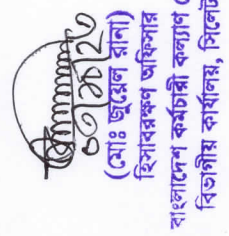 (মোঃ জুয়েল রানা)
হিসাবরক্ষণ অফিসার
বাংলাদেশ কর্মচারী কল্যাণ
বিভাগীয় কার্যালয়, সিলেট